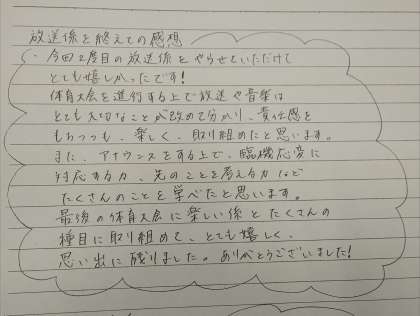 放送係を終えての感想
・今回2度目の放送係をやらせていただけて
とても嬉しかったです!
体育大会を進行する上で放送や音楽は
とても大切なことが改めて分かり、責任感を
もちつつも、楽しく、取り組めたと思います。
また、アナウンスをする上で、臨機応変に
対応する力、先のことを考える力など
たくさんのことを学べたと思います。
最後の体育大会に楽しい係とたくさんの
種目に取り組めて、とても嬉しく、
思い出に残りました。ありがとうございました!